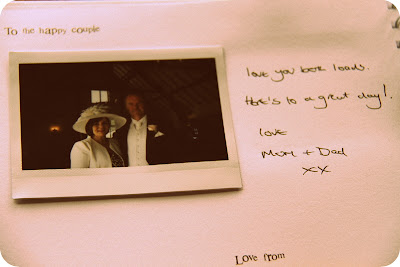 To the happy couple
love you both loads.
Here's to a great day!.
love
Mum + Dad
xx
Love from